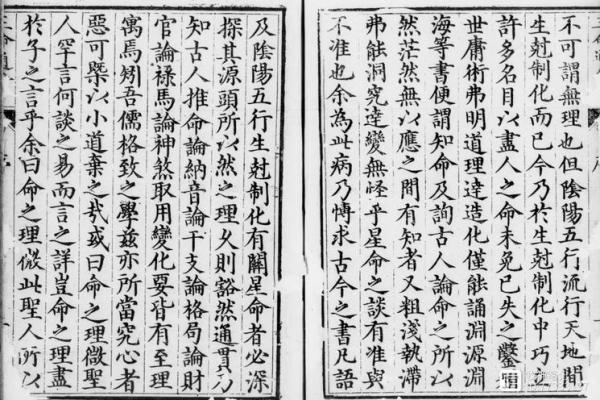 不可謂無理也但陰陽五行流行天地間
生尅制化而已今乃於生尅制化中巧立
許多名目以盡人之命未免已失之鑿
世庸術弗明道理達造化僅能誦淵源淵
海等書便謂知命及詢古人論命之所以
然茫然無以應之間有知者又粗淺執滯
弗能洞究達變無怪乎星命之談有准與
不准也余為此病乃博求古今之書凡語
及陰陽五行生尅制化有關星命者必深
探其源頭所以然之理久則豁然通貫乃
知古人推命論納音論干支論格局論財
官論祿馬論神煞取用變化要皆有至理
寓焉矧吾儒格致之學兹亦所當究心者
惡可槩以小道棄之哉或曰命之理微聖
人罕言何談之易而言之詳豈命之理盡
於子之言乎余曰命之理微此聖人所以